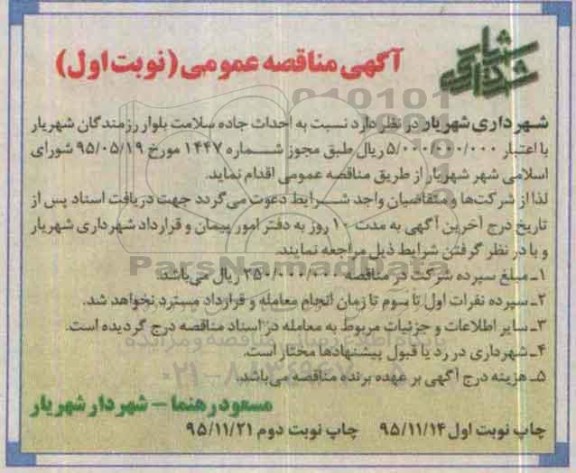 شهرداری شهریار
آگهی مناقصه عمومی (نوبت اول)
شهرداری شهریار در نظر دارد نسبت به احداث جاده سلامت بلوار رزمندگان شهریار
با اعتبار ۵/۰۰۰/۰۰۰/۰۰۰ ریال طبق مجوز شماره ۱۴۴۷ مورخ ۹۵/۰۵/۱۹ شورای
اسلامی شهر شهریار از طریق مناقصه عمومی اقدام نماید.
لذا از شرکت‌ها و متقاضیان واجد شرایط دعوت می‌گردد جهت دریافت اسناد پس از
تاریخ درج آخرین آگهی به مدت ۱۰ روز به دفتر امور پیمان و قرارداد شهرداری شهریار
و با در نظر گرفتن شرایط ذیل مراجعه نمایند.
ParsNamadData
۱ـ مبلغ سپرده شرکت در مناقصه ۲۵۰/۰۰۰/۰۰۰ ریال می‌باشد.
۲ـ سپرده نفرات اول تا سوم تا زمان انجام معامله و قرارداد مسترد نخواهد شد.
۳ـ سایر اطلاعات و جزئیات مربوط به معامله در اسناد مناقصه درج گردیده است.
۴ـ شهرداری در رد یا قبول پیشنهادها مختار است.
۵ـ هزینه درج آگهی بر عهده برنده مناقصه می‌باشد.
مسعود رهنما – شهردار شهریار
چاپ نوبت اول ۹۵/۱۱/۱۴ چاپ نوبت دوم ۹۵/۱۱/۲۱